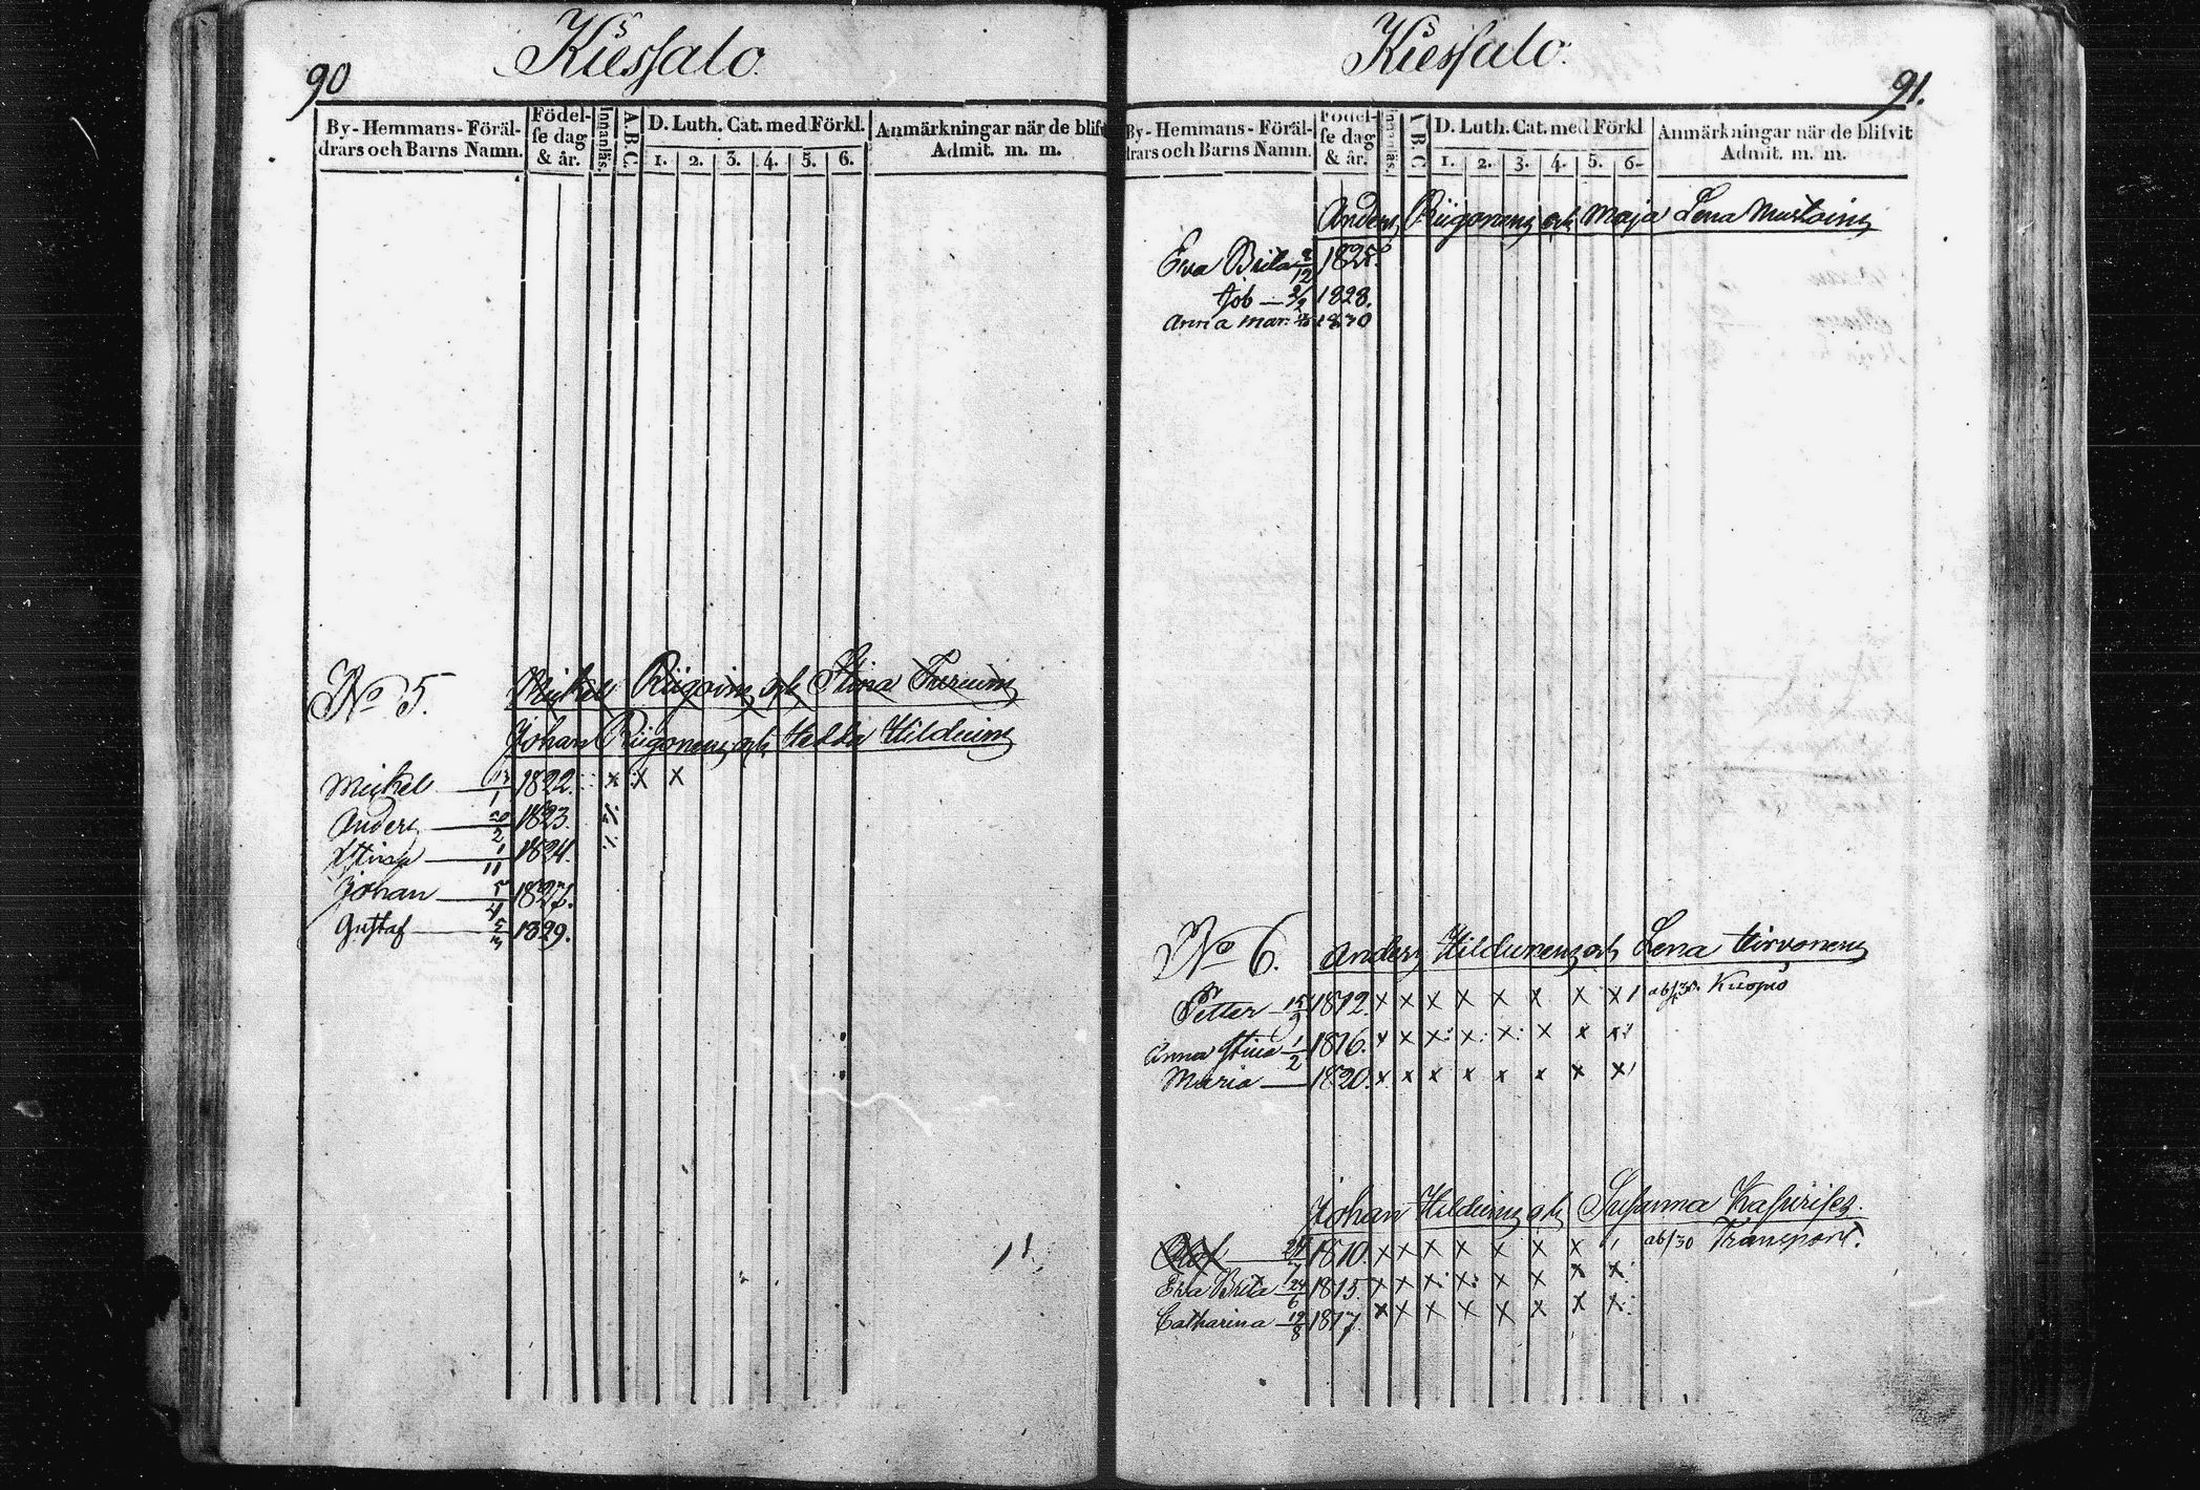 90
Kiessalo.
By-Hemmans-Föräl-
drars och Barns Namn.
Födel-
se dag
& år.
Innanläs.
A.B.C.
D. Luth. Cat. med Förkl.
1. 2. 3. 4. 5. 6.
Anmärkningar när de blifv
Admit. m. m.
No 5.
Johan Riigonen och Hedda
Michel 1822. x x x
Anders 20/2 1823.
Stina 1/11 1824.
Johan 5/4 1827.
Gustaf 5/3 1829.
Kiessalo.
91.
By-Hemmans-Föräl-
drars och Barns Namn.
Födel-
se dag
& år.
Innanläs.
A.B.C
D. Luth. Cat. med Förkl
1. 2. 3. 4. 5. 6-
Anmärkningar när de blifvit
Admit. m. m.
Anders Riigonen och Maja Lena
Eva Brita 1825.
Job 1828.
Anna Mar: 1830
No 6.
Anders Hildunen och Lena Hirvonen
Petter 15/9 1812. x x x x x x x x 1 Kuopio
Anna Stina 1/2 1816. x x x: x: x: x x x
Maria 1820. x x x x x x x x
Johan och Susanna
Olof 1810. x x x x x x x ab/30 Transport.
Eva Brita 24/6 1815. x x x: x: x x x x
Catharina 19/8 1817. x x x x x x x x